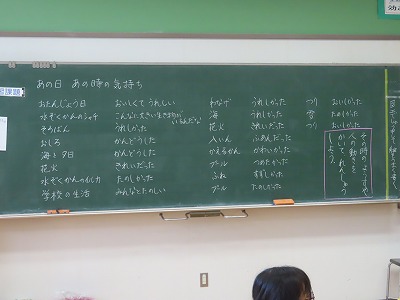 あの日 あの時の気持ち
おたんじょう日 おいしくて うれしい
水ぞくかんのシャチ こんなに大きい生き物がいるんだな
そろばん うれしかった
おしろ かんどうした
海と夕日 かんどうした
花火 きれいだった
水ぞくかんのイルカ たのしかった
学校の生活 みんなとたのしい
わなげ うれしかった
海 うれしかった
花火 きれいだった
入いん ふあんだった
かえるかん かわいかった
プール つめたかった
ふね すずしかった
プール たのしかった
つり おいしかった
雪 たのしかった
つり おいしかった
その時のようすや
人の動きを
かいて れんしゅう
しよう。